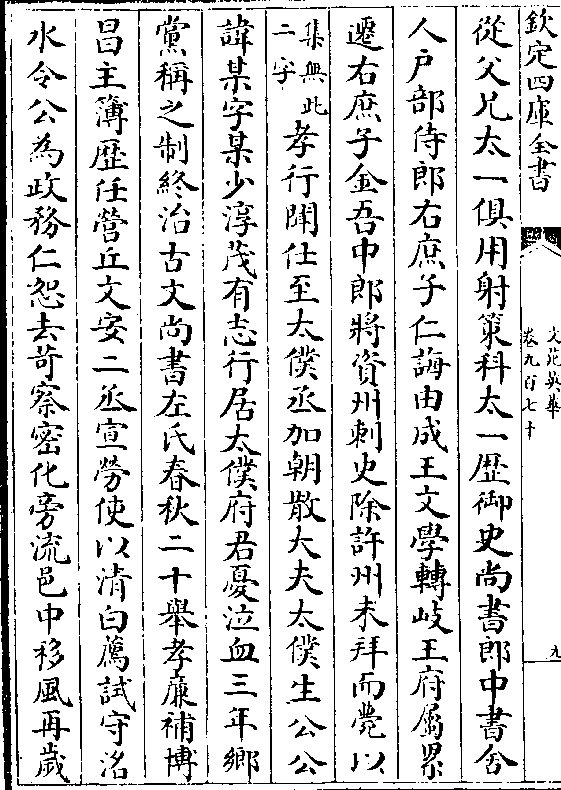 欽定四庫全書
文苑英華
卷九百七十
九
從父兄太一俱用射策科太一歴御史尚書郎中書舍
人户部侍郎右庶子仁誨由成王文學轉岐王府屬累
遷右庶子金吾中郎將資州刺史除許州未拜而薨以
集無此
二字
孝行聞仕至太僕丞加朝散大夫太僕生公公
諱某字某少淳茂有志行居太僕府君憂泣血三年鄉
黨稱之制終治古文尚書左氏春秋二十舉孝㢘補博
昌主簿歴任營丘文安二丞宣勞使以清白薦試守洺
水令公為政務仁恕去苛察密化旁流邑中移風再歲